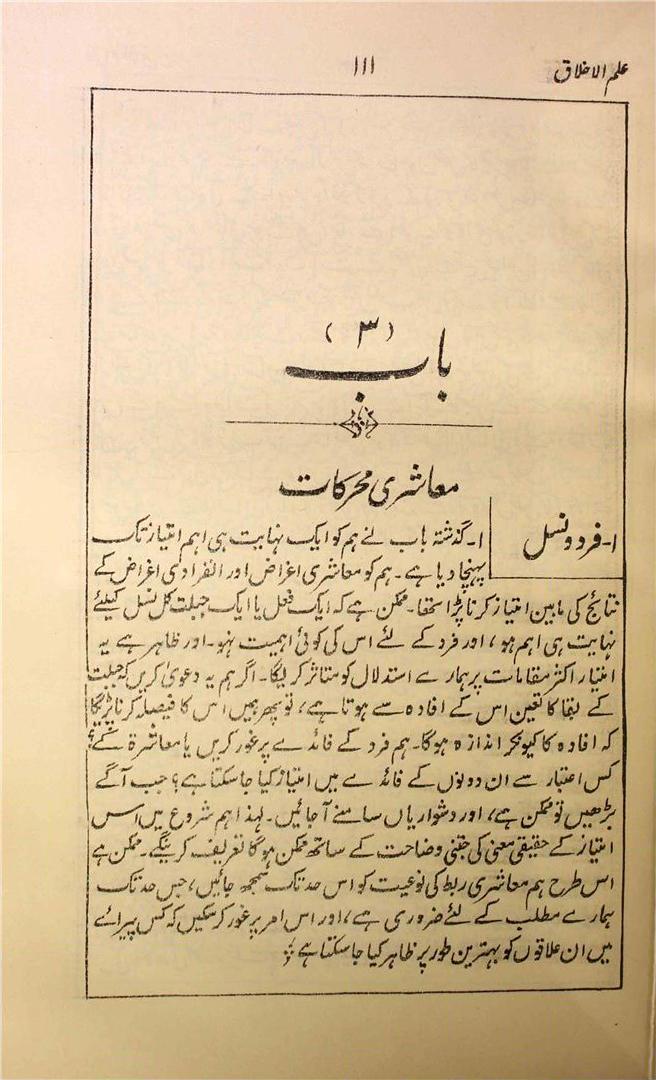 علم الاخلاق
۱۱۱
باب (۳)
معاشری محرکات
۱۔ فرد و نسل
۱۔ گذشتہ باب نے ہم کو ایک نہایت ہی اہم امتیاز تک
پہنچا دیا ہے۔ ہم کو معاشری اغراض اور انفرادی اغراض کے
نتائج کی مابین امتیاز کرنا پڑا تھا۔ ممکن ہے کہ ایک فعل یا ایک جبلت کل نسل کیلئے
نہایت ہی اہم ہو، اور فرد کے لئے اس کی کوئی اہمیت نہو۔ اور ظاہر ہے یہ
امتیاز اکثر مقامات پر ہمارے استدلال کو متاثر کریگا۔ اگر ہم یہ دعویٰ کریں کہ جبلت
کے بقا کا تعین اس کے افادہ سے ہوتا ہے، تو پھر ہمیں اس کا فیصلہ کرنا پڑیگا
کہ افادہ کا کیونکر اندازہ ہوگا۔ ہم فرد کے فائدے پر غور کریں یا معاشرۃ کے؟
کس اعتبار سے ان دونوں کے فائدے میں امتیاز کیا جاسکتا ہے؟ جب آگے
بڑھیں تو ممکن ہے، اور دشواریاں سامنے آجائیں۔ لہذا ہم شروع میں اس
امتیاز کے حقیقی معنی کی جتنی وضاحت کے ساتھ ممکن ہوگا تعریف کرینگے۔ ممکن ہے
اس طرح ہم معاشری ربط کی نوعیت کو اس حد تک سمجھ جائیں، جس حد تک
ہمارے مطلب کے لئے ضروری ہے، اور اس امر پر غور کرسکیں کہ کس پیرائے
میں ان علاقوں کو بہترین طور پر ظاہر کیا جاسکتا ہے؟